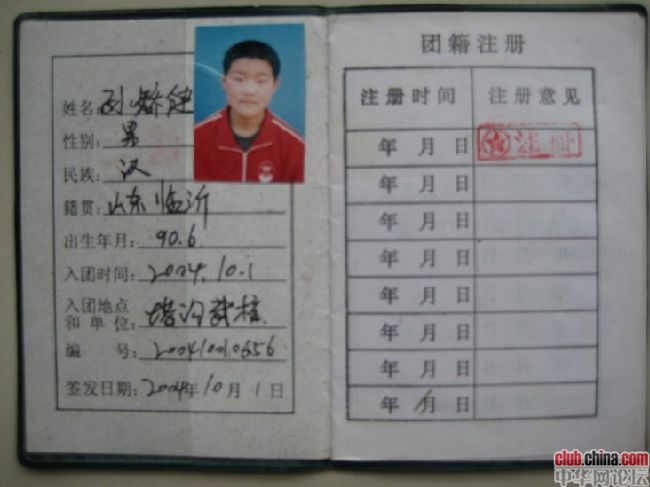 姓名:
性别: 男
民族: 汉
籍贯: 山东临沂
出生年月: 90.6
入团时间: 2004.10.1
入团地点
和单位: 塔沟武校
编 号: 20041010656
签发日期: 2004年10月1日
团籍注册
注册时间 注册意见
年 月 日 注册
年 月 日
年 月 日
年 月 日
年 月 日
年 月 日
年 月 日
年 月 日
club.china.com
中华网论坛